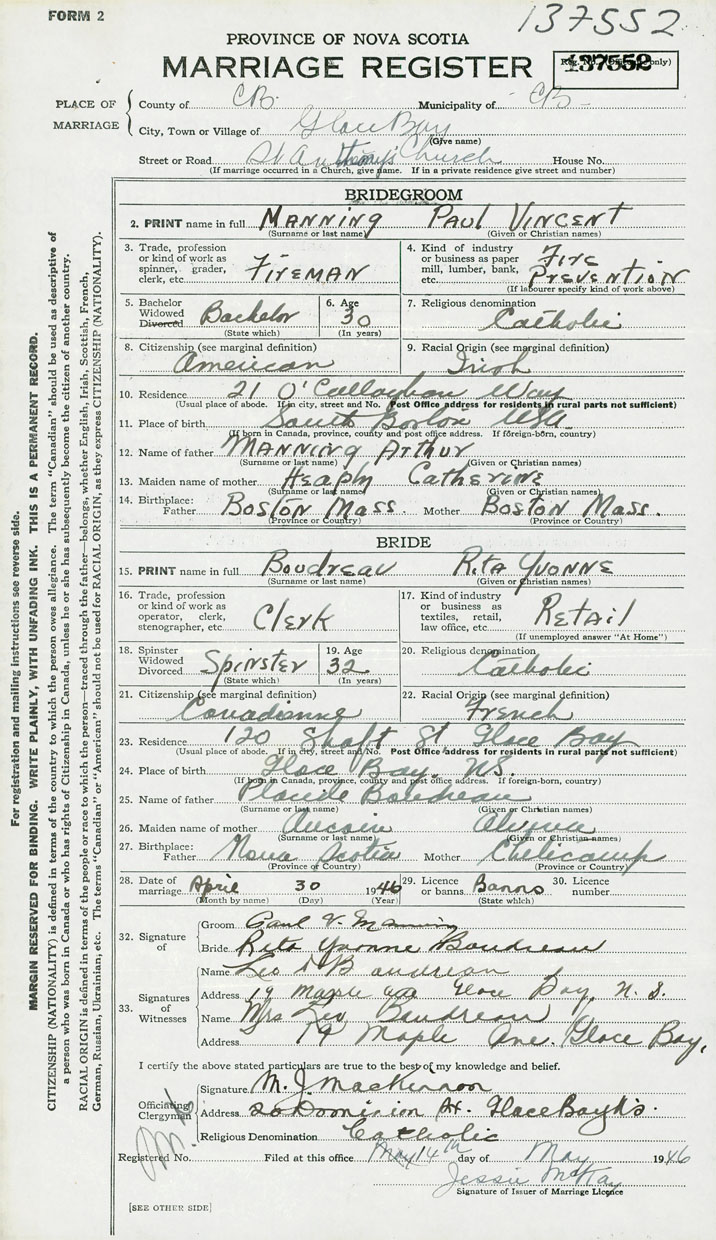 FORM 2
137552
PROVINCE OF NOVA SCOTIA
MARRIAGE REGISTER
Reg. No. (Office use only)
137552
PLACE OF MARRIAGE
County of CB. Municipality of CB-
City, Town or Village of Glace Bay
(Give name)
Street or Road St Anthony's Church House No.
(If marriage occurred in a Church, give name. If in a private residence give street and number)
BRIDEGROOM
2. PRINT name in full MANNING PAUL VINCENT
(Surname or last name) (Given or Christian names)
3. Trade, profession or kind of work as spinner, grader, clerk, etc. FIREMAN
4. Kind of industry or business as paper mill, lumber, bank, etc. FIRE PREVENTION
(If labourer specify kind of work above)
5. Bachelor Widowed Divorced Bachelor
(State which)
6. Age 30
(In years)
7. Religious denomination Catholic
8. Citizenship (see marginal definition) American
9. Racial Origin (see marginal definition) Irish
10. Residence 21 O'Callaghan Way
(Usual place of abode. If in city, street and No. Post Office address for residents in rural parts not sufficient)
11. Place of birth South Boston USA.
(If born in Canada, province, county and post office address. If foreign-born, country)
12. Name of father MANNING ARTHUR
(Surname or last name) (Given or Christian names)
13. Maiden name of mother HEAPHY CATHERINE
(Surname or last name) (Given or Christian names)
14. Birthplace: Father BOSTON MASS. Mother BOSTON MASS.
(Province or Country) (Province or Country)
BRIDE
15. PRINT name in full Boudreau Rita Yvonne
(Surname or last name) (Given or Christian names)
16. Trade, profession or kind of work as operator, clerk, stenographer, etc. Clerk
17. Kind of industry or business as textiles, retail, law office, etc. Retail
(If unemployed answer "At Home")
18. Spinster Widowed Divorced Spinster
(State which)
19. Age 32
(In years)
20. Religious denomination Catholic
21. Citizenship (see marginal definition) Canadienne
22. Racial Origin (see marginal definition) French
23. Residence 120 Shaft St Glace Bay
(Usual place of abode. If in city, street and No. Post Office address for residents in rural parts not sufficient)
24. Place of birth Glace Bay. N.S.
(If born in Canada, province, county and post office address. If foreign-born, country)
25. Name of father Placide Boudreau
(Surname or last name) (Given or Christian names)
26. Maiden name of mother Aucoin
(Surname or last name) (Given or Christian names)
27. Birthplace: Father Nova Scotia Mother Cheticamp
(Province or Country) (Province or Country)
28. Date of marriage April 30 1946
(Month by name) (Day) (Year)
29. Licence or banns Banns
(State which)
30. Licence number
32. Signature of
Groom Paul V. Manning
Bride Rita Yvonne Boudreau
33. Signatures of Witnesses
Name Leo Boudreau
Address 19 Maple Glace Bay, N.S.
Name Mrs Leo Boudreau
Address 19 Maple Ave. Glace Bay,
I certify the above stated particulars are true to the best of my knowledge and belief.
Officiating Clergyman
Signature M. J. MacKinnon
Address 20 Dominion St. Glace Bay N.S.
Religious Denomination Catholic
Registered No. Filed at this office May 14th day of May 1946
Jessie McKay
Signature of Issuer of Marriage Licence
[SEE OTHER SIDE]
For registration and mailing instructions see reverse side.
MARGIN RESERVED FOR BINDING. WRITE PLAINLY, WITH UNFADING INK. THIS IS A PERMANENT RECORD.
CITIZENSHIP (NATIONALITY) is defined in terms of the country to which the person owes allegiance. The term "Canadian" should be used as descriptive of
a person who was born in Canada or who has rights of Citizenship in Canada, unless he or she has subsequently become the citizen of another country.
RACIAL ORIGIN is defined in terms of the people or race to which the person—traced through the father—belongs, whether English, Irish, Scottish, French,
German, Russian, Ukrainian, etc. The terms "Canadian" or "American" should not be used for RACIAL ORIGIN, as they express CITIZENSHIP (NATIONALITY).